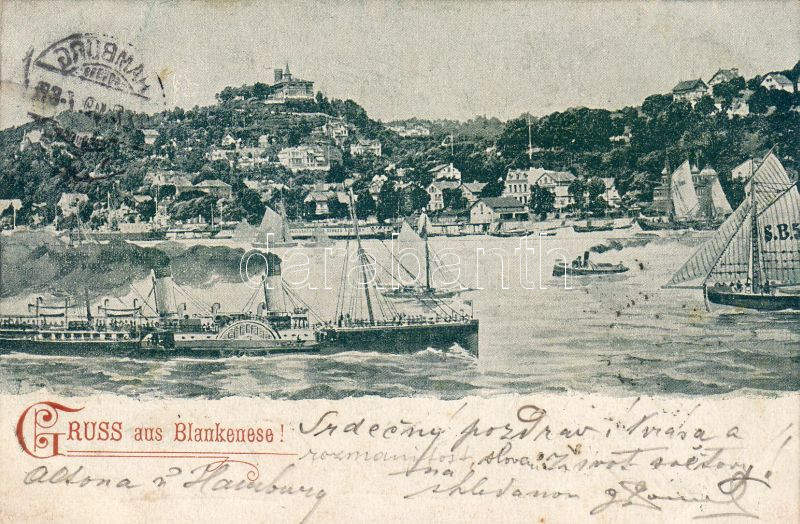 HAMBURG
S.B.5
darabanth
GRUSS aus Blankenese!
Srdečný pozdrav! Krása a
rozmanitost, slovem život světový!
na
shledanou
Altona v Hamburg